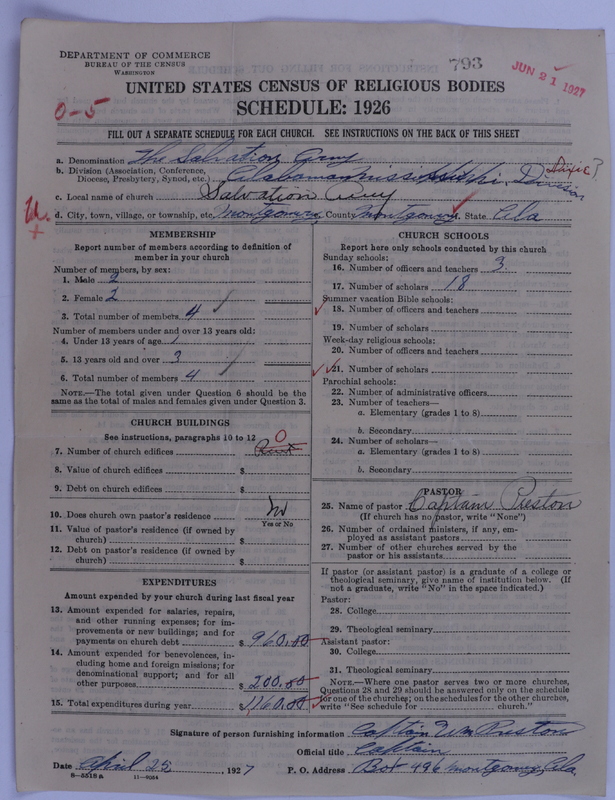 DEPARTMENT OF COMMERCE
BUREAU OF THE CENSUS
WASHINGTON
793
JUN 21 1927
UNITED STATES CENSUS OF RELIGIOUS BODIES
SCHEDULE: 1926
0-5
FILL OUT A SEPARATE SCHEDULE FOR EACH CHURCH. SEE INSTRUCTIONS ON THE BACK OF THIS SHEET
a. Denomination The Salvation Army
b. Division (Association, Conference, Diocese, Presbytery, Synod, etc.) Alabama Mississippi Division Dixie?
c. Local name of church Salvation Army
d. City, town, village, or township, etc. Montgomery County Montgomery State Ala
MEMBERSHIP
Report number of members according to definition of
member in your church
Number of members, by sex:
1. Male 2
2. Female 2
3. Total number of members 4
Number of members under and over 13 years old:
4. Under 13 years of age 1
5. 13 years old and over 3
6. Total number of members 4
NOTE.—The total given under Question 6 should be
same as the total of males and females given under Question 3.
CHURCH BUILDINGS
See instructions, paragraphs 10 to 12
7. Number of church edifices Rent 0
8. Value of church edifices $
9. Debt on church edifices $
10. Does church own pastor's residence No
Yes or No
11. Value of pastor's residence (if owned by
church) $
12. Debt on pastor's residence (if owned by
church) $
EXPENDITURES
Amount expended by your church during last fiscal year
13. Amount expended for salaries, repairs,
and other running expenses; for im-
provements or new buildings; and for
payments on church debt $ 960.00
14. Amount expended for benevolences, in-
cluding home and foreign missions; for
denominational support; and for all
other purposes $ 200.00
15. Total expenditures during year $ 1160.00
CHURCH SCHOOLS
Report here only schools conducted by this church
Sunday schools:
16. Number of officers and teachers 3
17. Number of scholars 18
Summer vacation Bible schools:
18. Number of officers and teachers
19. Number of scholars
Week-day religious schools:
20. Number of officers and teachers
21. Number of scholars
Parochial schools:
22. Number of administrative officers
23. Number of teachers—
a. Elementary (grades 1 to 8)
b. Secondary
24. Number of scholars—
a. Elementary (grades 1 to 8)
b. Secondary
PASTOR
25. Name of pastor Captain Preston
(If church has no pastor, write "None")
26. Number of ordained ministers, if any, em-
ployed as assistant pastors
27. Number of other churches served by the
pastor or his assistants
If pastor (or assistant pastor) is a graduate of a college or
theological seminary, give name of institution below. (If
not a graduate, write "No" in the space indicated.)
Pastor:
28. College
29. Theological seminary
Assistant pastor:
30. College
31. Theological seminary
NOTE.—Where one pastor serves two or more churches,
Questions 28 and 29 should be answered only on the schedule
for one of the churches; on the schedules for the other churches,
write "See schedule for church."
Signature of person furnishing information Captain Wm Preston
Official title Captain
Date April 25 1927 P. O. Address Box 496 Montgomery, Ala.
8-5518a 11-9084